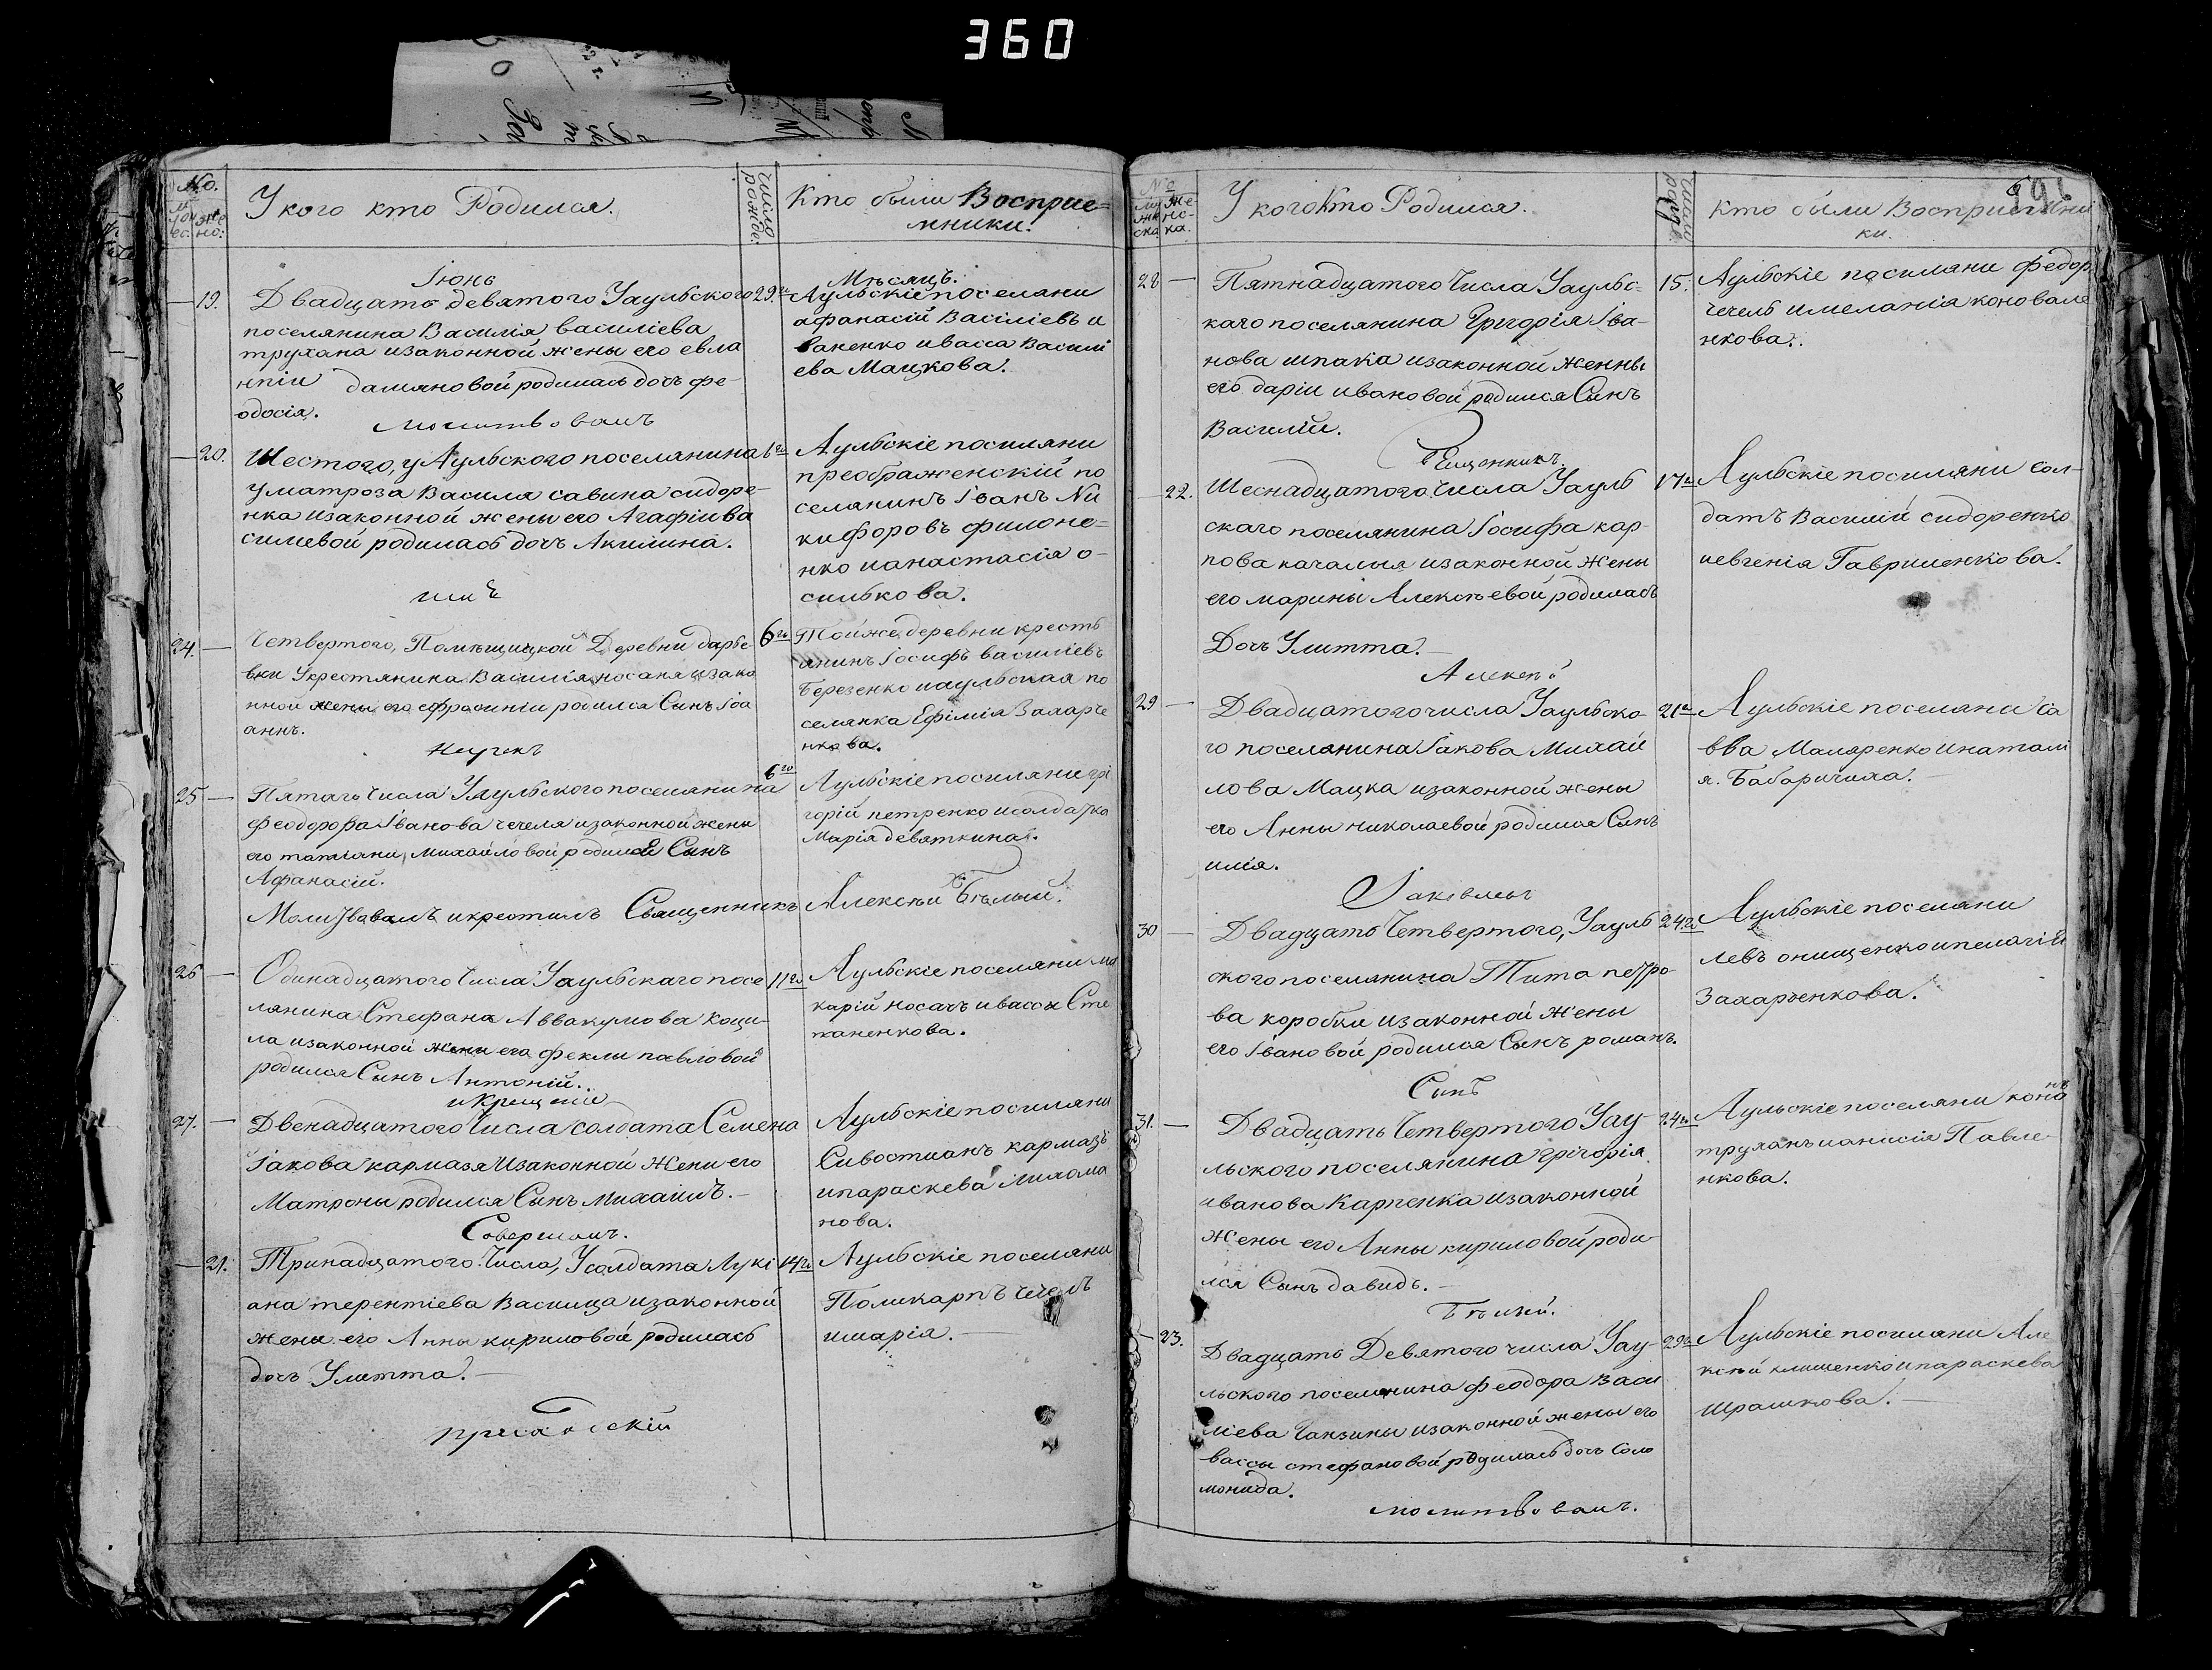 360
No.
У кого кто Родился.
число рожде:
Кто были Восприе=
мники.
Іюнь
Мѣсяцъ.
19. Двадцать девятого Уаульского 29.
поселянина Василія василіева
трухана изаконной жены его евла
мпіи даміяновой родилась дочь фе-
одосія.
Аульскіе поселяни
афанасій Василіевъ и
ваненко ивасса Василі
ева Мацкова.
Молитвовалъ
20. Шестого, уАульского поселянина 6го
уматроза Василя савина сидоре-
нка изаконной жены его Агафіи ва
силіевой родилась дочь Акилина.
Аульскіе посиляни
преображенскій по
селянинъ Іоанъ Ни
кифоровъ филоне=
нко ианастасія о-
силькова.
24. Четвертого, Помѣщицкой Деревни дарье-
вки Укрестянина Василія носаня изако
нной жены его ефросиніи родился Сынъ Іоа
аннъ.
6го Тойже деревни кресть
янинъ Іосифъ василіевъ
березенко иаульская по
селянка Ефимія Захарче
нкова.
25 Пятаго числа Уаульского поселянина 6го
феодора Іванова чечеля изаконной жены
его татіяни, михайловой родился Сынъ
Афанасій.
Аульскіе посиляни грі
горій петренко исолдатка
Марія девяткина.
Молитвовалъ икрестилъ Священникъ Алексѣй Бѣлый.
26 Одинадцатого Числа Уаульскаго посе 11го
лянина Стефана Аввакумова коци-
ла изаконной жени его феклы павловой
родился Сынъ Антоній.
Аульскіе поселяни ма
карій носачъ ивасса Сте
паненкова.
икрещеніе
27. Двенадцатого Числа солдата Семена
Іакова кармазя Изаконной Жени его
Матроны родился Сынъ михаилъ.
Аульскіе посиляни
Сивостианъ кармазъ
ипараскева лихома
нова.
Совершалъ.
21. Тринадцатого Числа, Усолдата Лукі 14го
ана терентіева Васища изаконной
жени его Анны кириловой родилась
дочь Улитта.
Аульскіе поселяни
Поликарпъ Чечель
имарія.
No
У кого Кто Родился.
Кто были Восприемни
ки.
28 Пятнадцатого Числа Уаульс- 15.
каго поселянина Григорія Іва-
нова шпака изаконной Женны
его даріи ивановой родился Сынъ
Василій.
Аульскіе посиляни федор
чечель имеланія коновале
нкова.
22. Шеснадцатого Числа Уауль 17
скаго поселянина Іосифа кар-
пова качалыя изаконной Жены
его марины Алексѣевой родилась
Дочь Улитта.
Аульскіе посиляни Сол-
датъ Василій сидоренко
иевгенія Гавриленкова.
Алексѣй
29 Двадцатого числа Уаульско- 21
го поселянина Іакова Михай
лова Мацка изаконной жены
его Анны николаевой родился Сынъ
илія.
Аульскіе поселяни Са
вва Маляренко инатали
я. Бабаричиха.
Іаковлевъ
30 Двадцать Четвертого, Уауль 24го
ского поселянина Тита петро-
ва коробки изаконной Жены
его Івановой родился Сынъ романъ.
Аульскіе поселяни
левъ онищенко ипелагія
Захарченкова.
Сынъ
31. Двадцать Четвертого Уау- 24го
льского поселянина григорія
иванова Карпенка изаконной
жены его Анны кириловой роди
лся Сынъ давидъ.
Аульскіе поселяни коно
нъ
труханъ ианисія Павле-
нкова.
Бѣлый.
23. Двадцать Девятого числа Уау- 29го
льского поселянина феодора Васи
ліева Ганзины изаконной жены его
вассы стефановой родилась дочь Соло
монида.
Аульскіе посиляни Але
ксѣй клименко ипараскева
Шрамкова.
молитвовалъ.